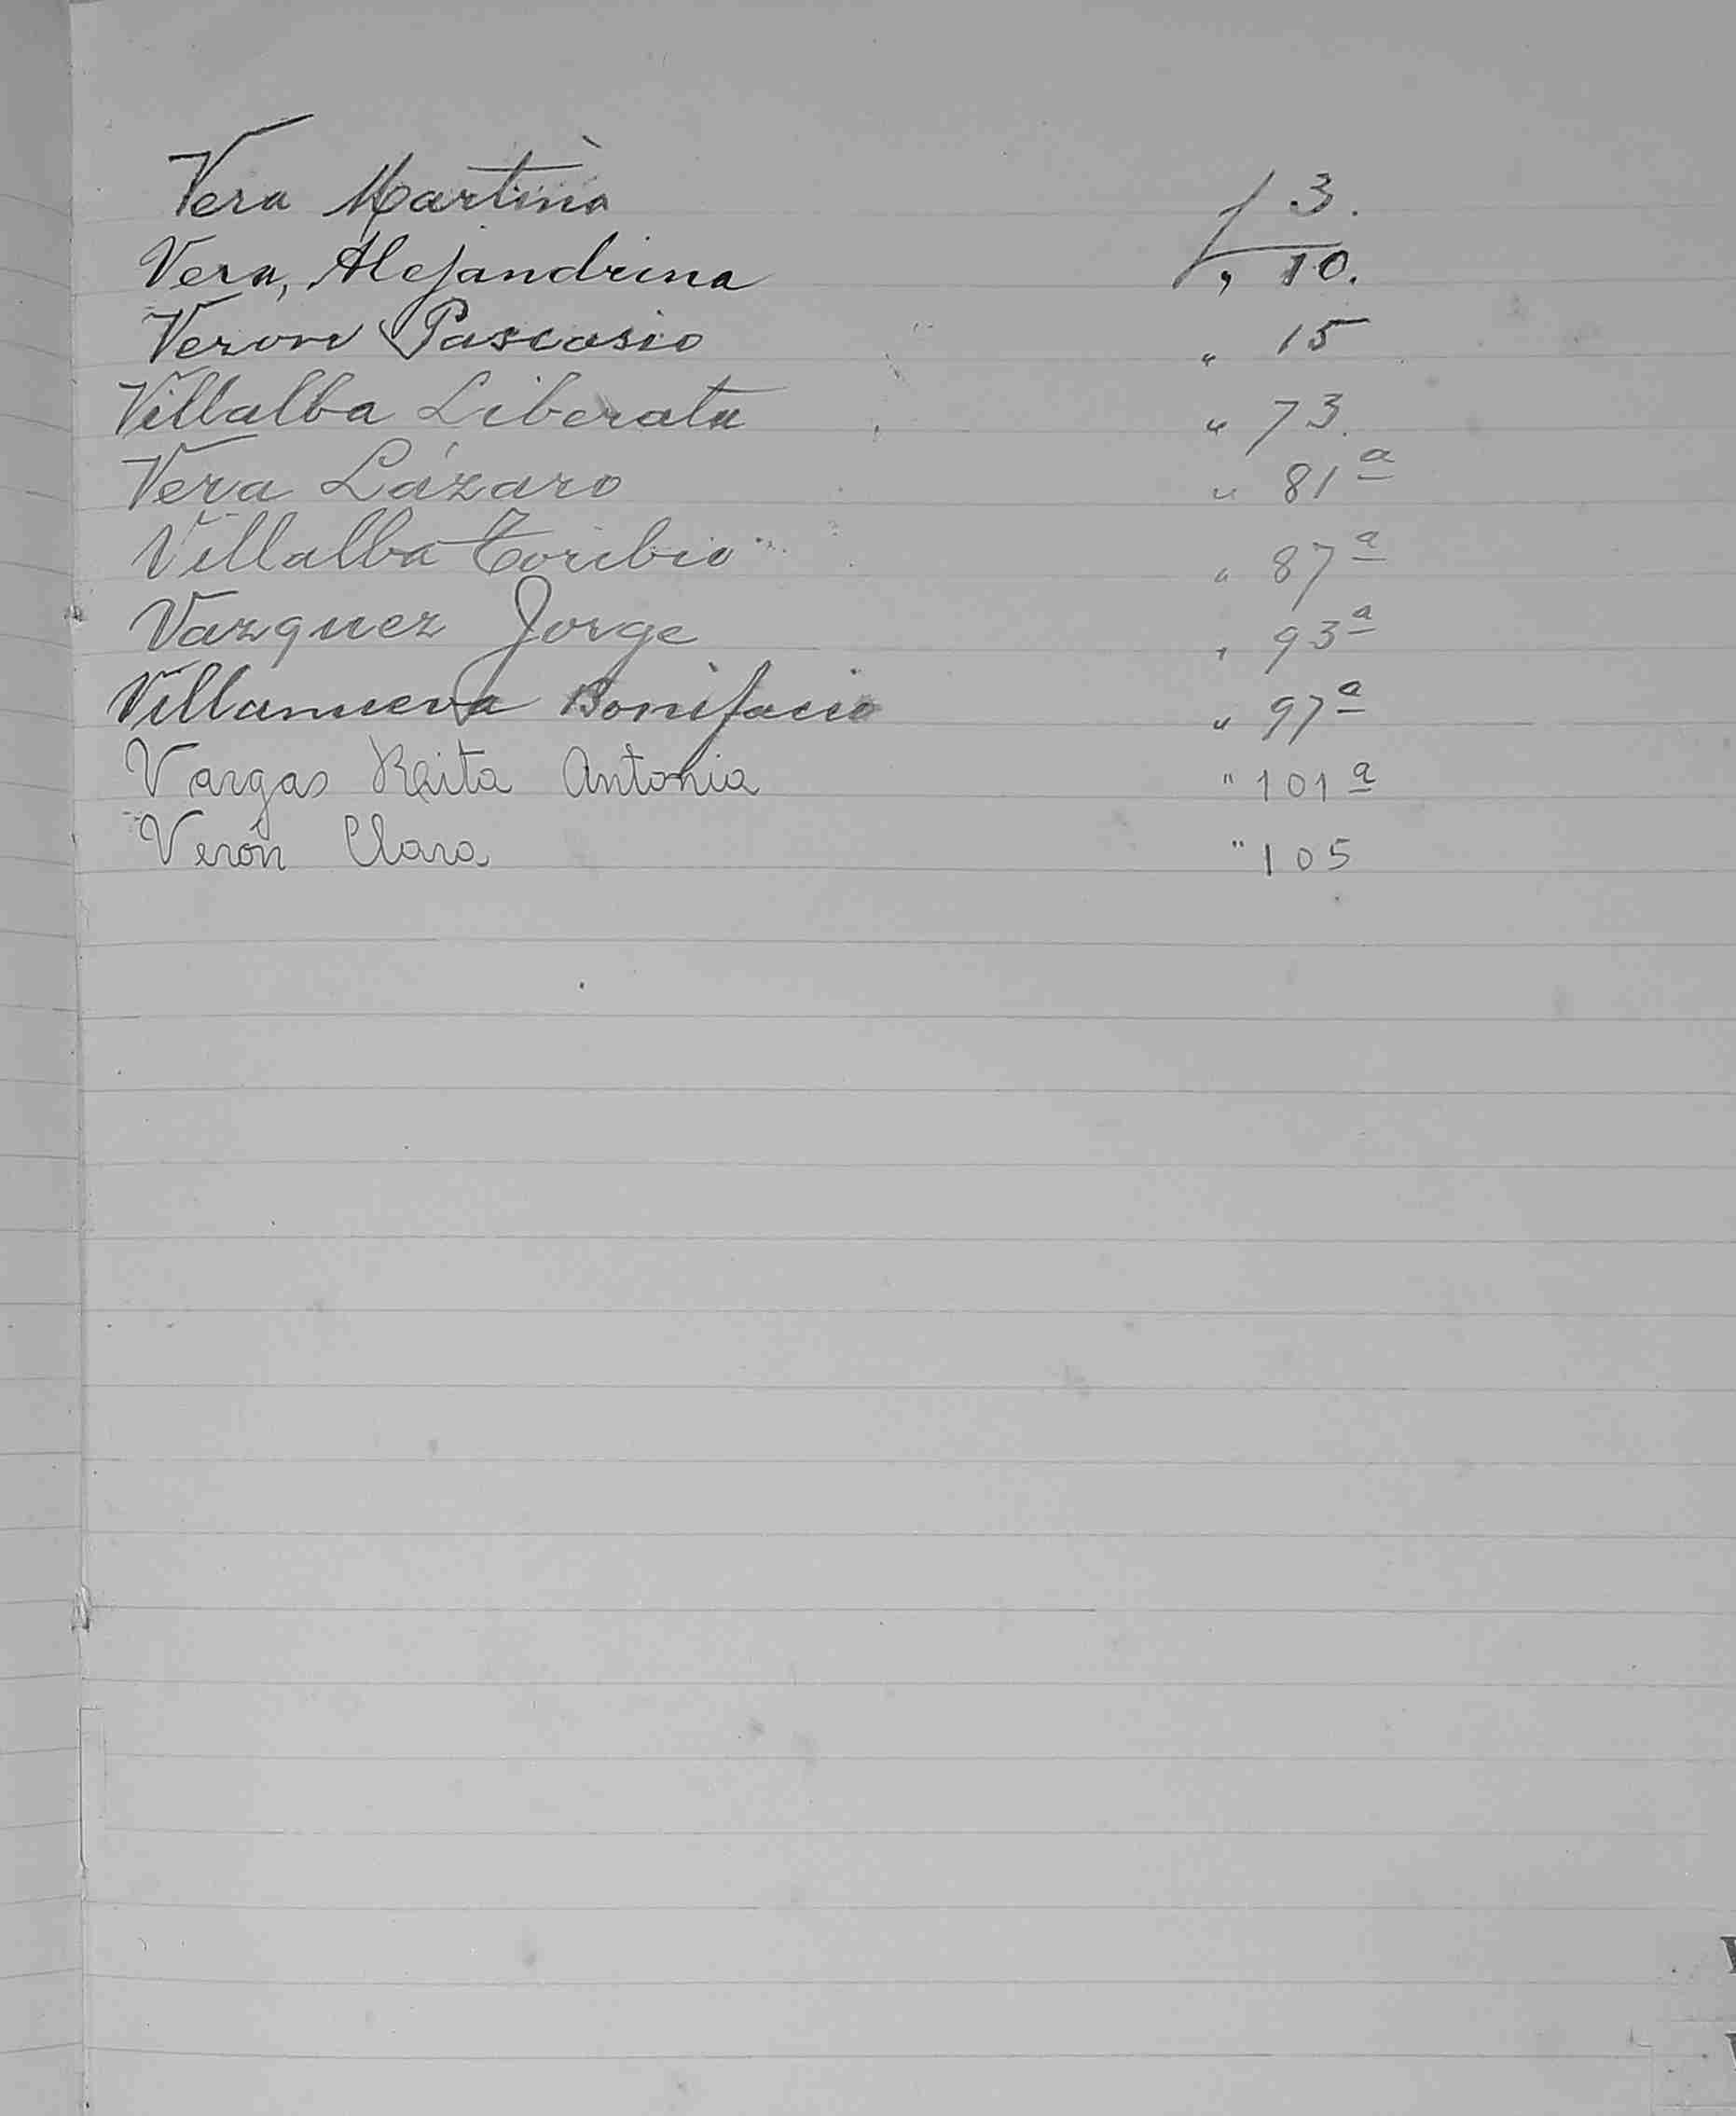 Vera Martina f 3.
Vera, Alejandrina " 10.
Veron Pascasio " 15
Villalba Liberata " 73.
Vera Lázaro " 81ª
Villalba Toribio " 87ª
Vazquez Jorge " 93ª
Villanueva Bonifacio " 97ª
Vargas Rita Antonia " 101ª
Verón Clara " 105